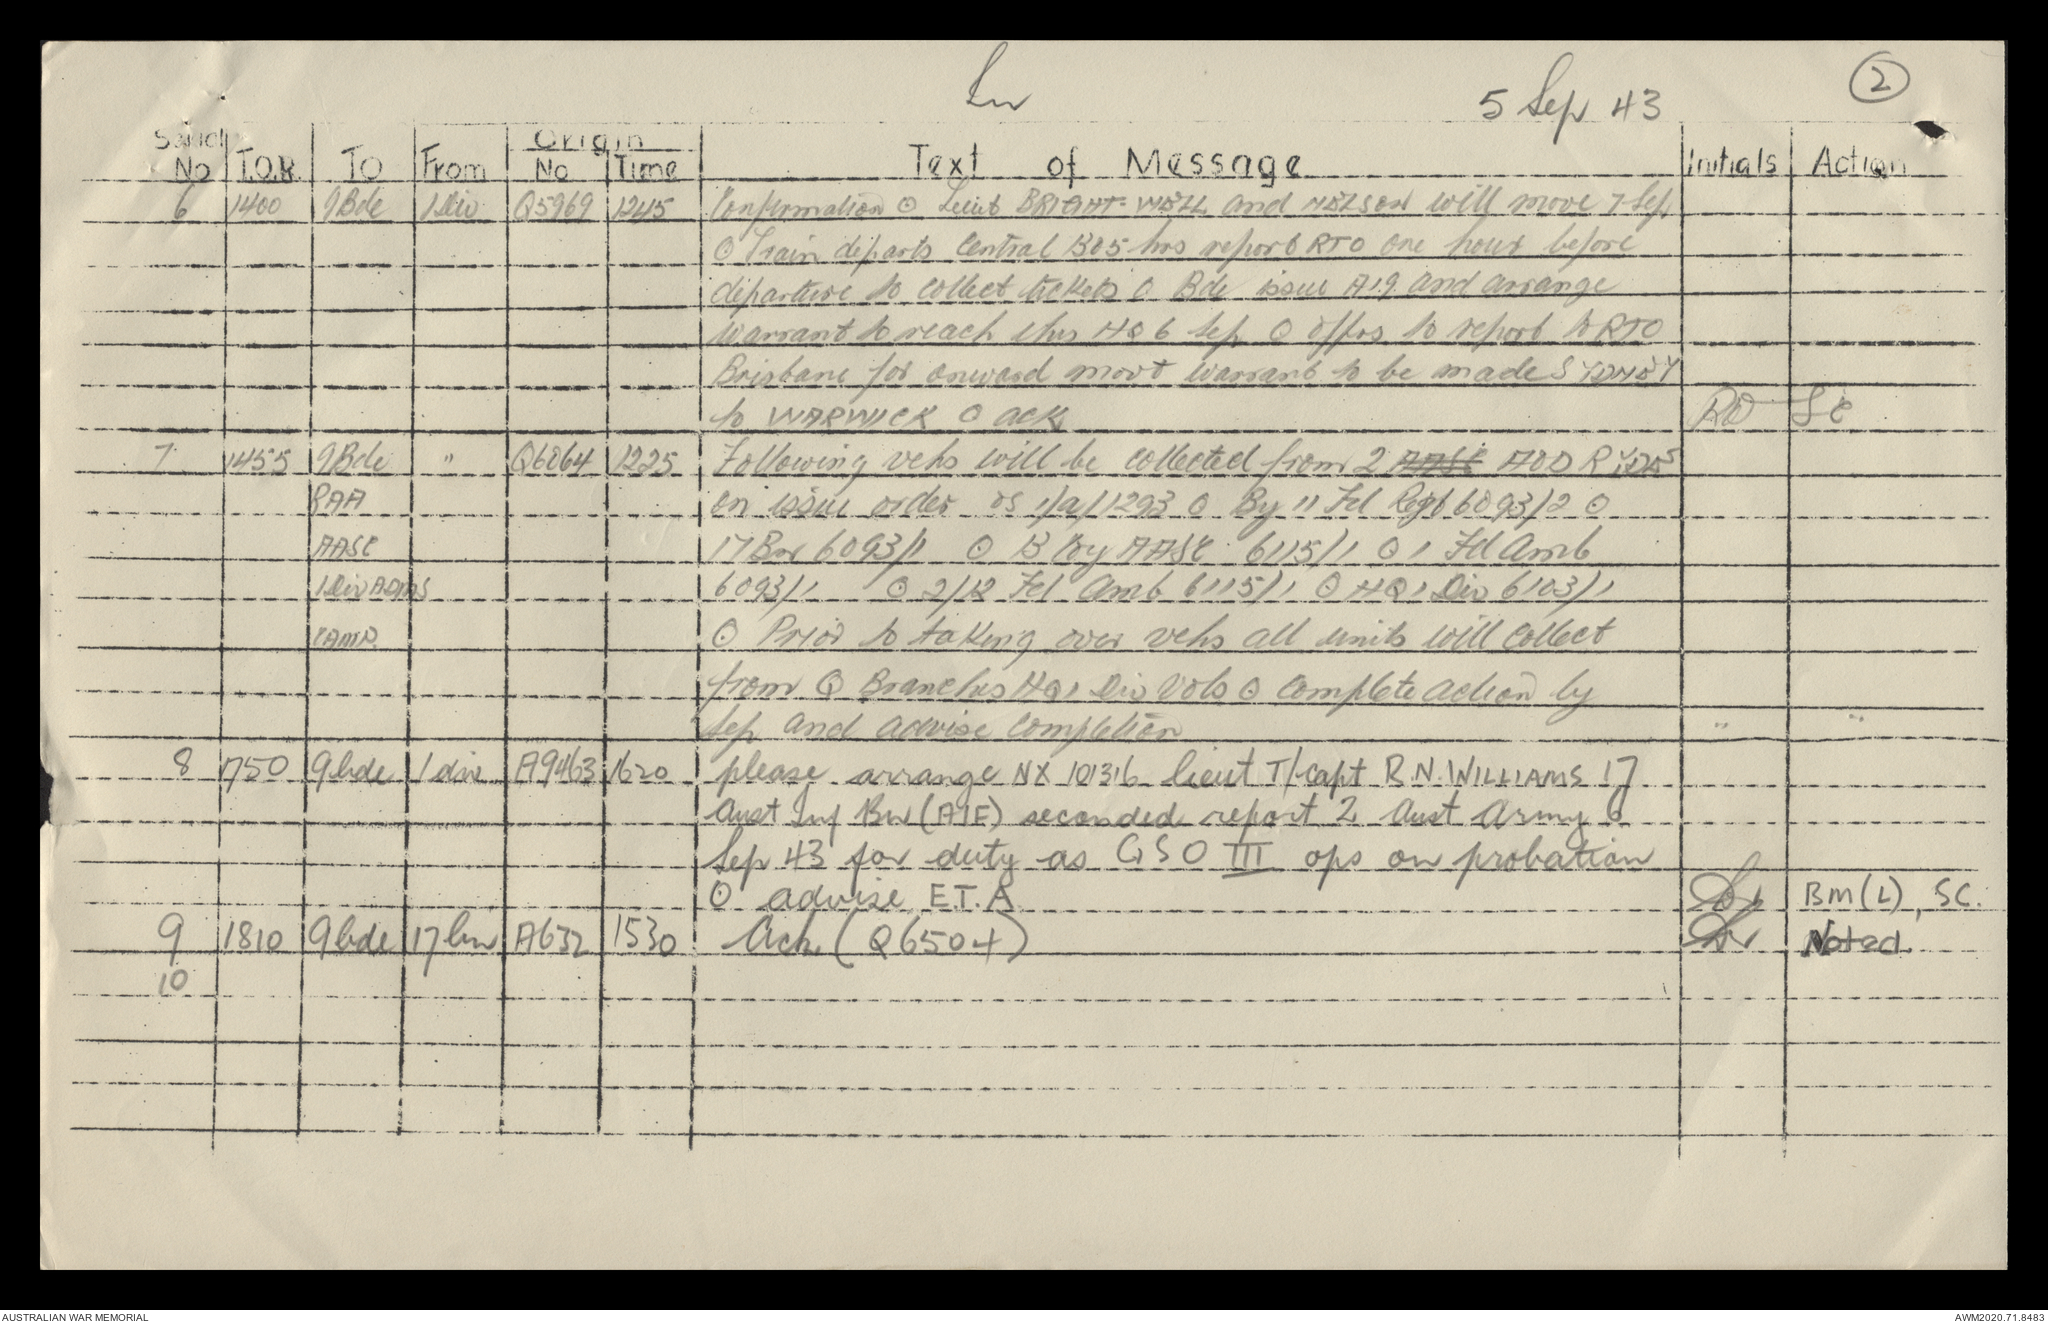 In
5 Sep 43
2
Serial No T.O.R. TO From Origin No Time Text of Message Initials Action
6 1400 9Bde 1 Div Q5969 1245 Confirmation ⊙ Lieut BRIGHT-WELL and NELSON will move 7 Sep
⊙ Train departs Central 1305 hrs report RTO one hour before
departure to collect tickets ⊙ Bde issue A19 and arrange
warrant to reach this HQ 6 Sep ⊙ offrs to report to RTO
Brisbane for onward movt warrant to be made SYDNEY
to WARWICK ⊙ ack SC
7 1455 9Bde " Q6064 1225 Following vehs will be collected from 2 AASC AOD
RAA on issue order 1/a/1293 ⊙ By 11 Fd Regt 6093/2 ⊙
AASC 17 Bn 6093/1 ⊙ B Coy AASC 6115/1 ⊙ 1 Fd Amb
1 Div ADMS 6093/1 ⊙ 2/12 Fd Amb 6115/1 ⊙ HQ 1 Div 6103/1
CAMP. ⊙ Prior to taking over vehs all units will collect
from Q Branches HQ 1 Div Vols ⊙ Complete action by
Sep and advise completion " "
8 1750 9 bde 1 div A9463 1620 please arrange NX 101316 lieut T/capt R.N. WILLIAMS 17
Aust Inf Bn (AIF) seconded report 2 Aust Army 6
Sep 43 for duty as GSO III ops on probation
⊙ advise E.T.A. BM(L), SC.
9 1810 9 bde 17 bn A632 1530 Ack (Q6504) Noted.
10
AUSTRALIAN WAR MEMORIAL
AWM2020.71.8483